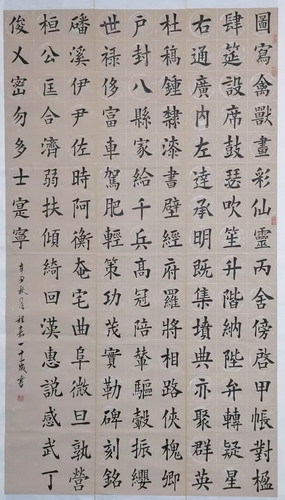 圖寫禽獸畫彩仙靈丙舍傍啓甲帳對楹
肆筵設席鼓瑟吹笙升階納陛弁轉疑星
右通廣內左達承明既集墳典亦聚群英
杜稿鍾隸漆書壁經府羅將相路俠槐卿
戶封八縣家給千兵高冠陪輦驅轂振纓
世祿侈富車駕肥輕策功茂實勒碑刻銘
磻溪伊尹佐時阿衡奄宅曲阜微旦孰營
桓公匡合濟弱扶傾綺回漢惠說感武丁
俊乂密勿多士寔寧
辛丑秋 歲書